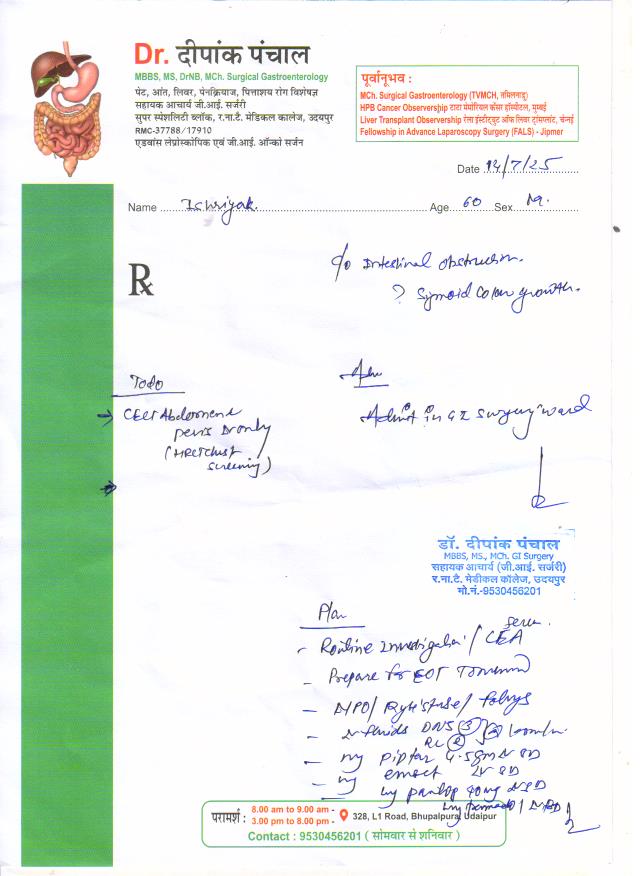 Dr. दीपांक पंचाल
MBBS, MS, DrNB, MCh. Surgical Gastroenterology
पेट, आंत, लिवर, पेनक्रियाज, पित्ताशय रोग विशेषज्ञ
सहायक आचार्य जी.आई. सर्जरी
सुपर स्पेशलिटी ब्लॉक, र.ना.टै. मेडिकल कालेज, उदयपुर
RMC-37788/17910
एडवांस लेप्रोस्कोपिक एवं जी.आई. ऑन्को सर्जन
पूर्वानुभव :
MCh. Surgical Gastroenterology (TVMCH, तमिलनाडु)
HPB Cancer Observership टाटा मेमोरियल कैंसर हॉस्पीटल, मुम्बई
Liver Transplant Observership रेला इंस्टीट्यूट ऑफ लिवर ट्रांसप्लांट, चेन्नई
Fellowship in Advance Laparoscopy Surgery (FALS) - Jipmer
Date 14/7/25
Name Ishriyak. Age 60 Sex M.
Rx
c/o Intestinal obstruction.
? Sigmoid colon growth.
Todo
CECT Abdomen &
pelvis
(HRCT chest
screening)
Adv
Admit in GI surgery ward
डॉ. दीपांक पंचाल
MBBS, MS., MCh. GI Surgery
सहायक आचार्य (जी.आई. सर्जरी)
र.ना.टै. मेडीकल कॉलेज, उदयपुर
मो.नं.-9530456201
Plan
- Routine Investigation / Serum CEA
- Prepare for EOT
- NPO / Ryle's tube / Foleys
- IV fluids DNS (3)
RL (2)
- Inj piptaz 4.5gm IV
- Inj emset IV
- Inj pantop 40mg IV
Inj
परामर्श :
8.00 am to 9.00 am -
3.00 pm to 8.00 pm -
328, L1 Road, Bhupalpura, Udaipur
Contact : 9530456201 ( सोमवार से शनिवार )